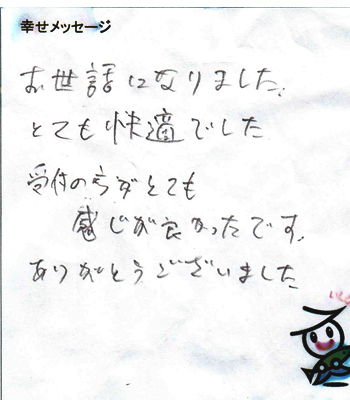 幸せメッセージ
お世話になりました。
とても快適でした
受付の方がとても
感じが良かったです。
ありがとうございました